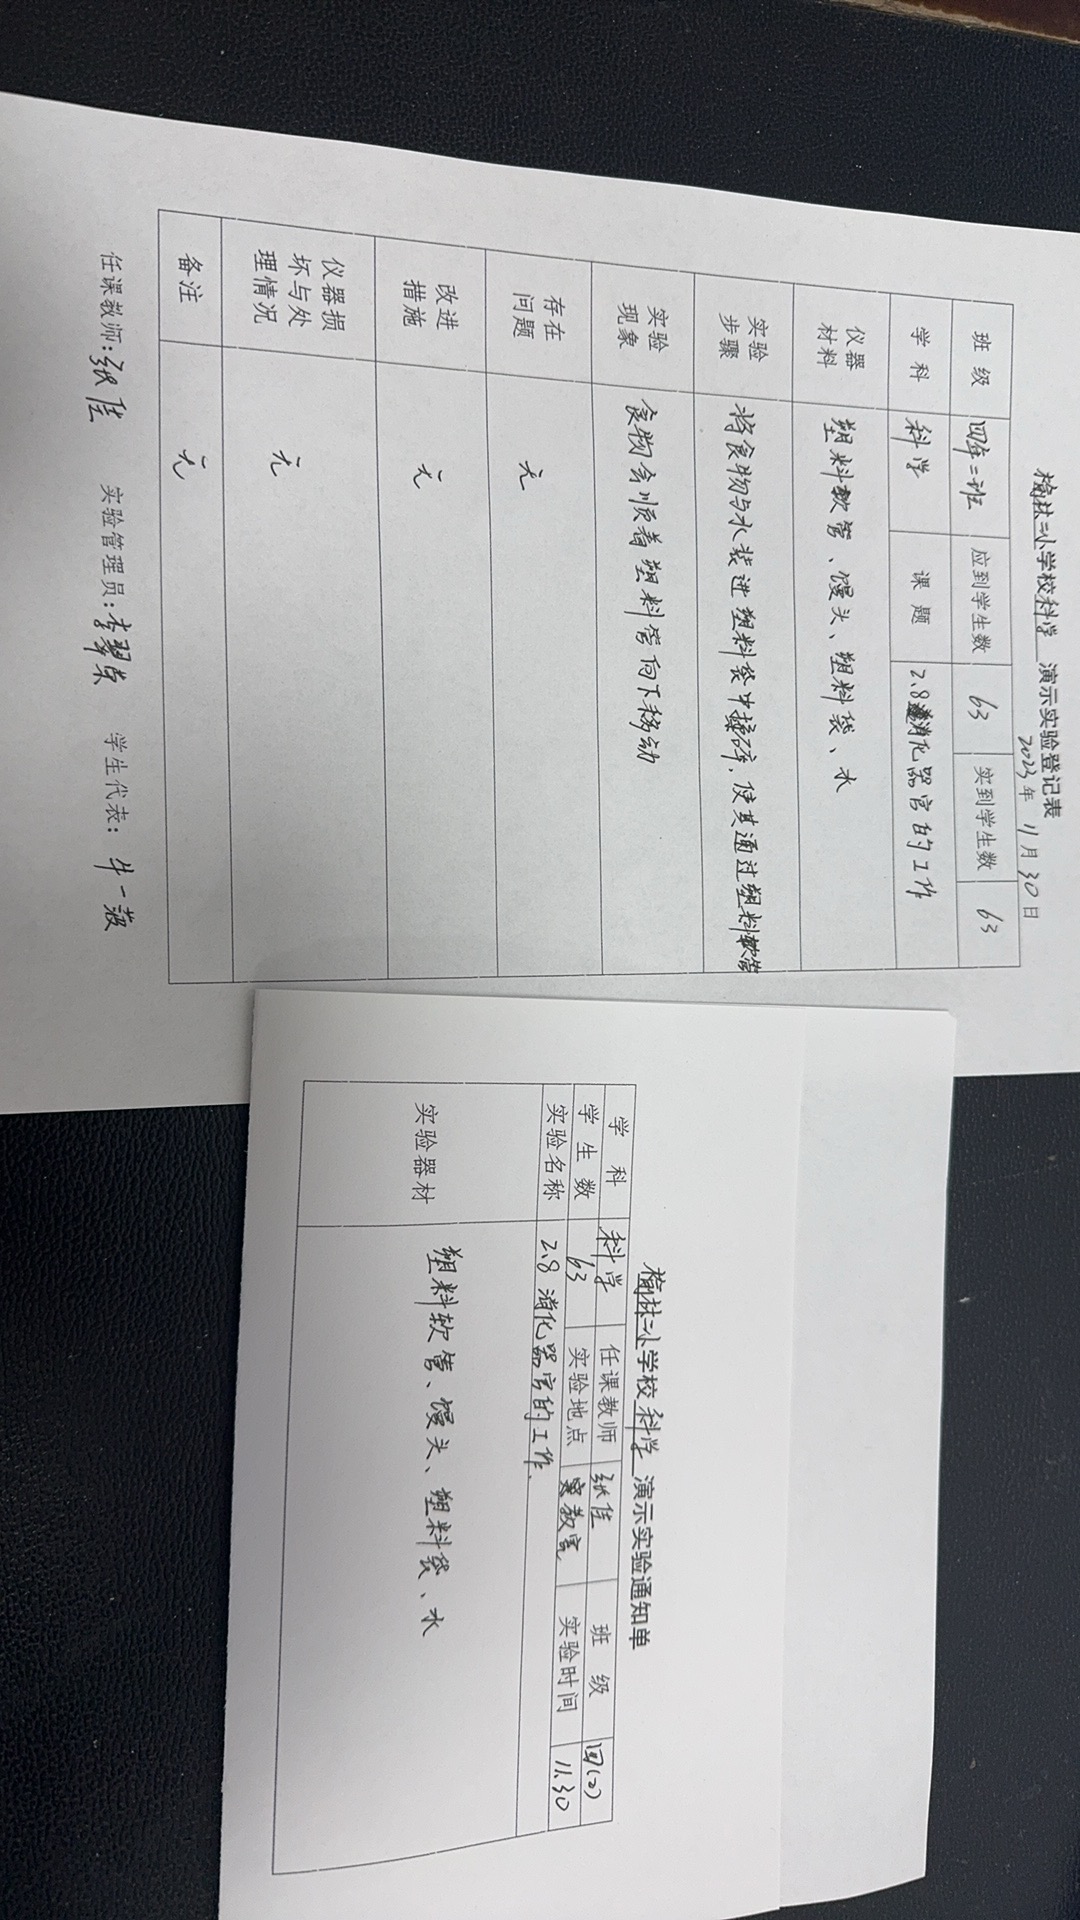 榆林二小学校科学 演示实验登记表
2023年 11月30日
班 级 四年二班 应到学生数 63 实到学生数 63
学 科 科学 课 题 2.8消化器官的工作
仪器材料 塑料软管、馒头、塑料袋、水
实验步骤 将食物与水装进塑料袋中揉碎,使其通过塑料软管
实验现象 食物会顺着塑料管向下移动
存在问题 无
改进措施 无
仪器损坏与处理情况 无
备注 无
任课教师:张佳 实验管理员:李翠荣 学生代表:牛一菠
榆林二小学校科学 演示实验通知单
学 科 科学 任课教师 张佳 班 级 四(2)
学 生 数 63 实验地点 教室 实验时间 11.30
实验名称 2.8 消化器官的工作.
实验器材 塑料软管、馒头、塑料袋、水